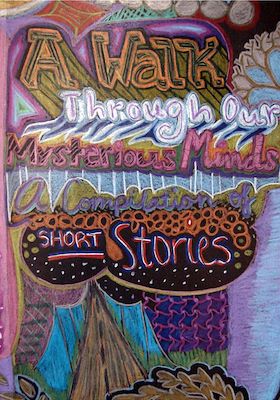 A Walk
Through Our
Mysterious Minds
A Compilation of
SHORT Stories